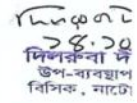 ২৪.১০
দিলরুবা দী
উপ-ব্যবস্থাপ
বিসিক, নাটো